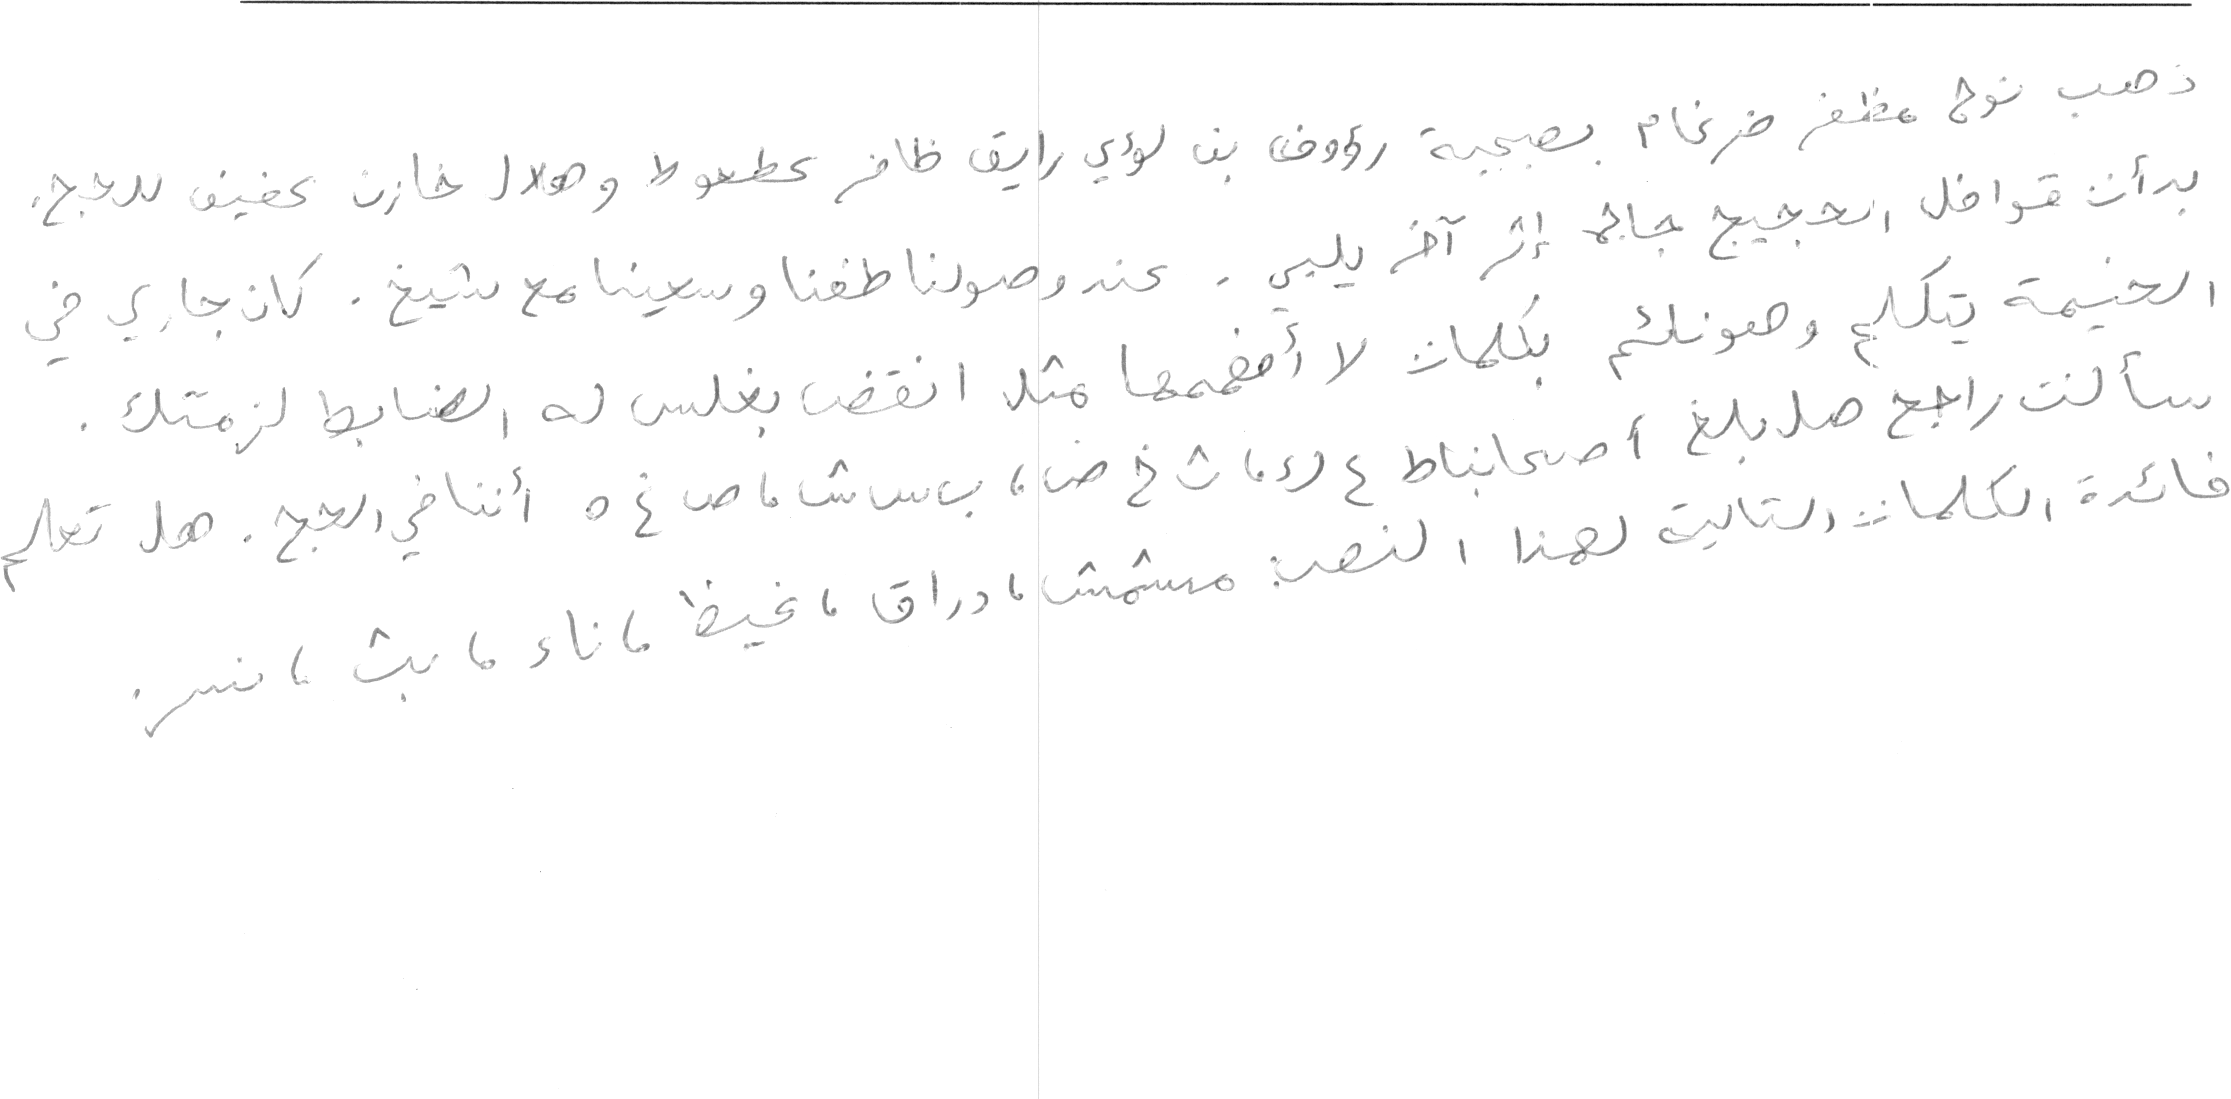 ذهب نوح مظفر ضرغام بصحبة رؤوف بن لؤي رايق ظافر عطعوط وهلال خازن عفيف للحج.
بدأت قوافل الحجيج جاثم إثر آخر يلبي. عند وصولنا طفنا وسعينا مع شيخ. كان جاري في
الخيمة يتكلم وهو نائم بكلمات لا أفهمها مثل انقض بغلس له الضابط لزمتك.
سألت راجح هل بلغ أصحابنا ط ع لاء، ث خ ض، ب س ش، ص غ ه أننا في الحج. هل تعلم
فائدة الكلمات التالية لهذا النص: مشمش، دراق، غيظ، ناء، بث، نسر.